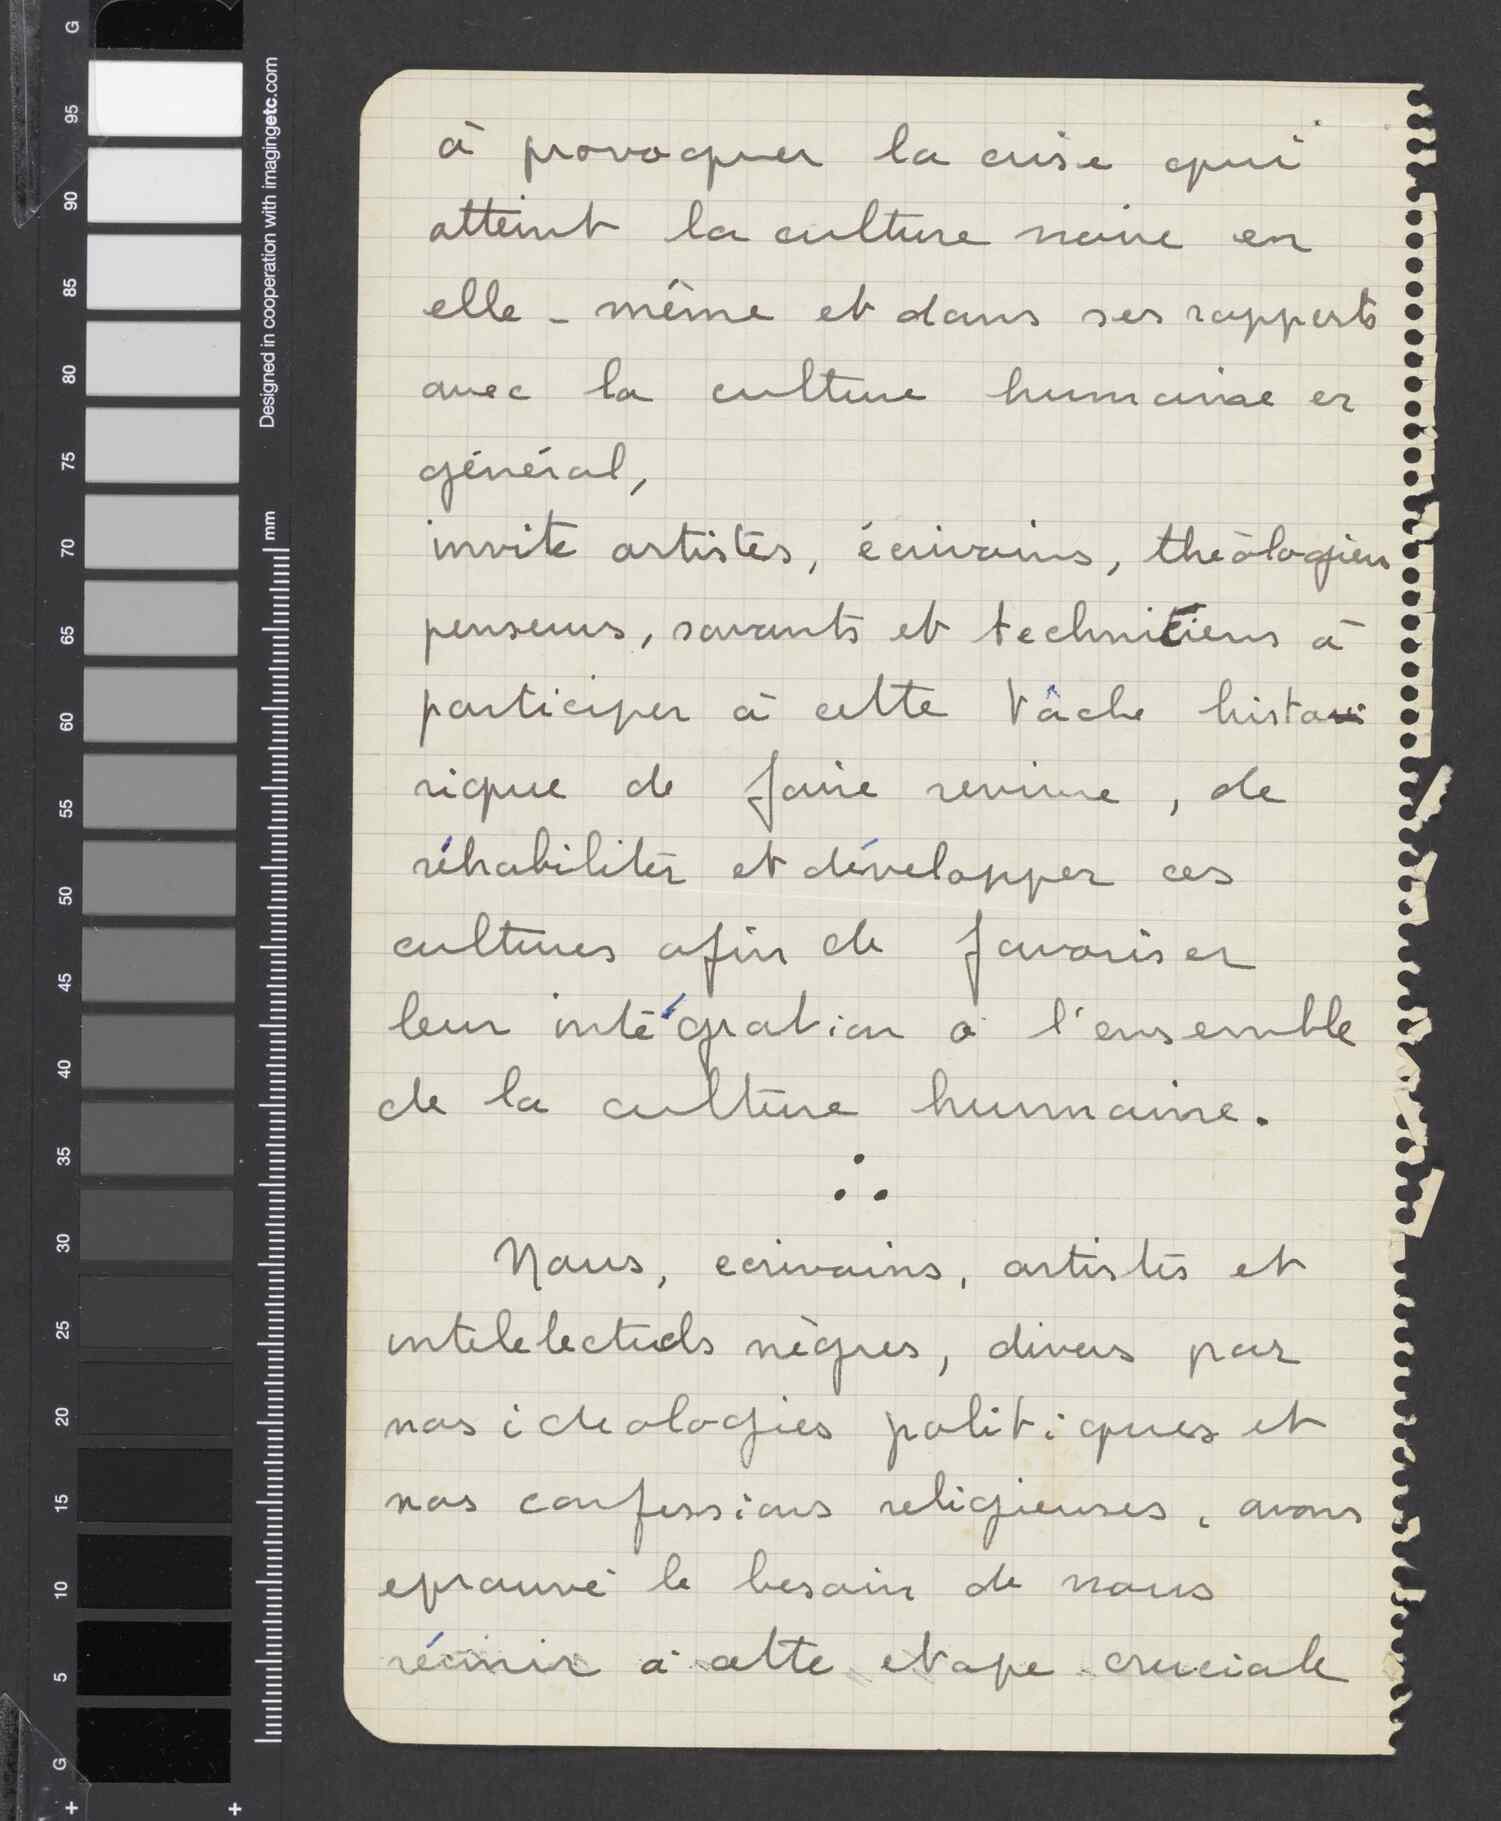 G
95
90
85
80
75
70
65
60
55
50
45
40
35
30
25
20
15
10
5
G
Designed in cooperation with imagingetc.com
mm
à provoquer la crise qui
atteint la culture noire en
elle-même et dans ses rapports
avec la culture humaine en
général,
invite artistes, écrivains, théologiens
penseurs, savants et techniciens à
participer à cette tâche histo
rique de faire revivre, de
réhabiliter et développer ces
cultures afin de favoriser
leur intégration à l'ensemble
de la culture humaine.
Nous, ecrivains, artistes et
intelelectuels nègres, divers par
nos ideologies politiques et
nos confessions religieuses, avons
eprouvé le besoin de nous
réunir à cette etape cruciale